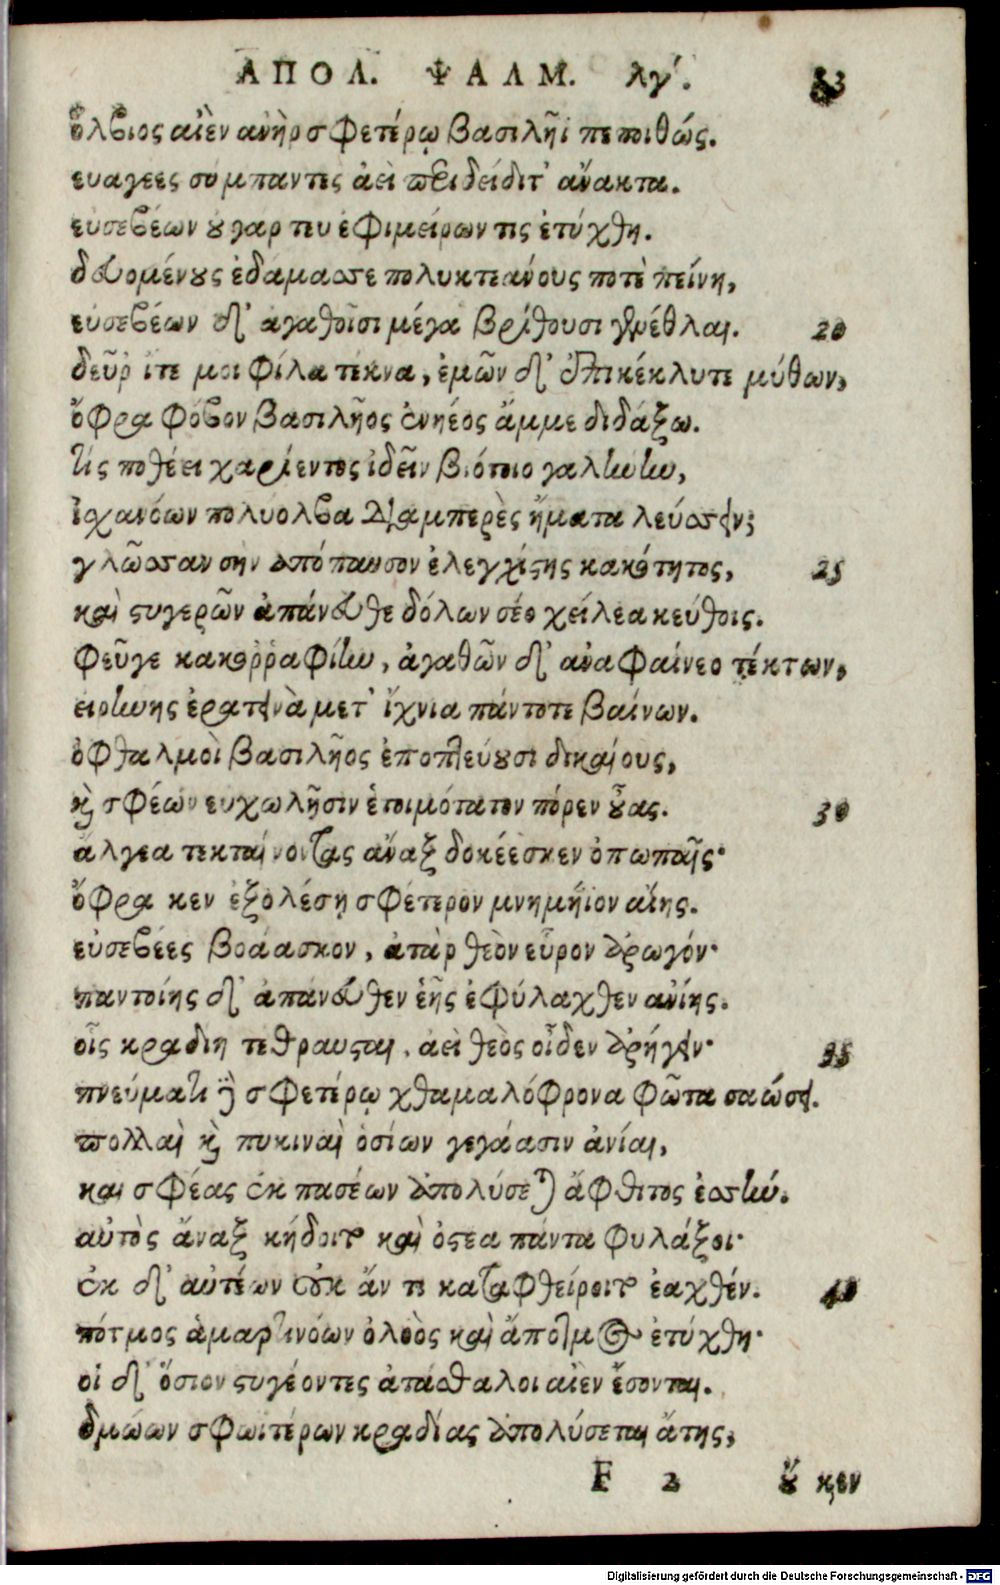 ΑΠΟΛ. ΨΑΛΜ. λγ΄. 83
ὄλβιος αἰὲν ἀνὴρ σφετέρῳ βασιλῆϊ πεποιθώς.
ευαγεες σύμπαντες ἀεὶ περιδείδιτ' ἄνακτα.
εὐσεβέων οὐ γαρ τευ ἐφιμείρων τις ἐτύχθη.
δευομένους ἐδάμασσε πολυκτεάνους ποτὲ πείνη,
εὐσεβέων δ' ἀγαθοῖσι μέγα βρίθουσι γενέθλαι. 20
δεῦρ' ἴτε μοι φίλα τέκνα, ἐμῶν δ' ἐπικέκλυτε μύθων,
ὄφρα φόβον βασιλῆος ἐνηέος ἄμμε διδάξω.
τίς ποθέει χαρίεντος ἰδεῖν βιότοιο γαλήνην,
ἰχανόων πολύολβα διαμπερὲς ἤματα λεύσσειν;
γλῶσσαν σὴν ἀπόπαυσον ἐλεγχίστης κακότητος, 25
καὶ στυγερῶν ἀπάνευθε δόλων σέο χείλεα κεύθοις.
φεῦγε κακορραφίην, ἀγαθῶν δ' ἀναφαίνεο τέκτων,
εἰρήνης ἐρατεινὰ μετ' ἴχνια πάντοτε βαίνων.
ὀφθαλμοὶ βασιλῆος ἐποπτεύουσι δικαίους,
καὶ σφέων ευχωλῆσιν ἑτοιμότατον πόρεν οὖας. 30
ἄλγεα τεκταίνοντας ἄναξ δοκέεσκεν ὀπωπαῖς·
ὄφρα κεν ἐξολέσῃ σφέτερον μνημήϊον αἴης.
εὐσεβέες βοάασκον, ἀτὰρ θεὸν εὗρον ἀρωγόν·
παντοίης δ' ἀπάνευθεν ἑῆς ἐφύλαχθεν ἀνίης.
οἷς κραδίη τέθραυσται, ἀεὶ θεὸς οἶδεν ἀρήγειν· 35
πνεύματι δὲ σφετέρῳ χθαμαλόφρονα φῶτα σαώσει.
πολλαὶ καὶ πυκιναὶ ὁσίων γεγάασιν ἀνίαι,
και σφέας ἐκ πασέων ἀπολύσεται ἄφθιτος ἐσσήν.
αὐτὸς ἄναξ κήδοιτο καὶ ὀστέα πάντα φυλάξοι·
ἐκ δ' αὐτέων οὐκ ἄν τι καταφθείροιτο ἐαχθέν. 40
πότμος ἁμαρτινόων ὀλοὸς καὶ ἄποτμος ἐτύχθη·
οἱ δ' ὅσιον στυγέοντες ἀτάσθαλοι αἰὲν ἔσονται.
δμώων σφωϊτέρων κραδίας ἀπολύσεται ἄτης,
F 2 οὔ κεν
Digitalisierung gefördert durch die Deutsche Forschungsgemeinschaft - DFG